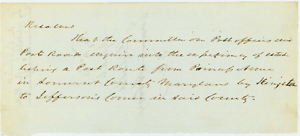 Resolved
That the Committee on Post offices and
Post Roads enquire into the expediency of estab
lishing a Post Route from
in Somerset County Maryland by
to Jefferson's Corner in said County.